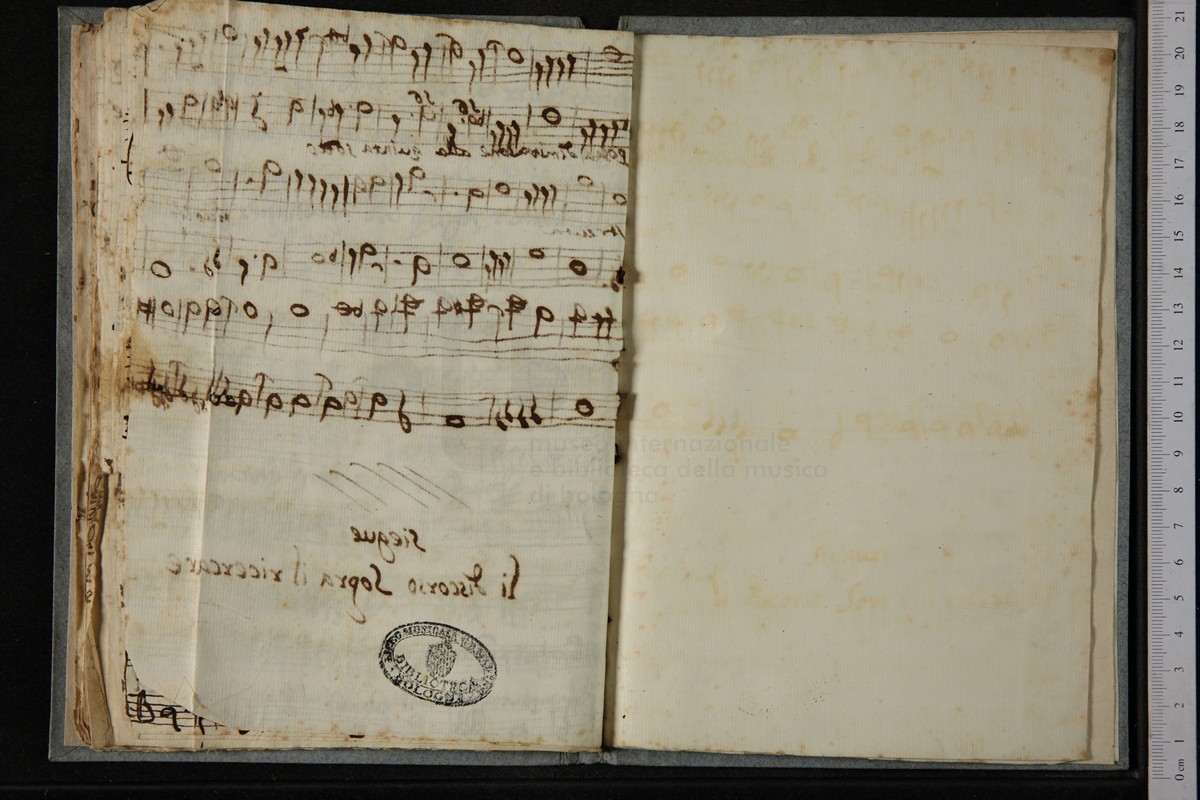 alla quinta sotto
siegue
Li discorso Sopra il ricercare
BIBLIOTECA
BOLOGNA
museo internazionale
e biblioteca della musica
di bologna
21
20
19
18
17
16
15
14
13
12
11
10
9
8
7
6
5
4
3
2
1
0 cm